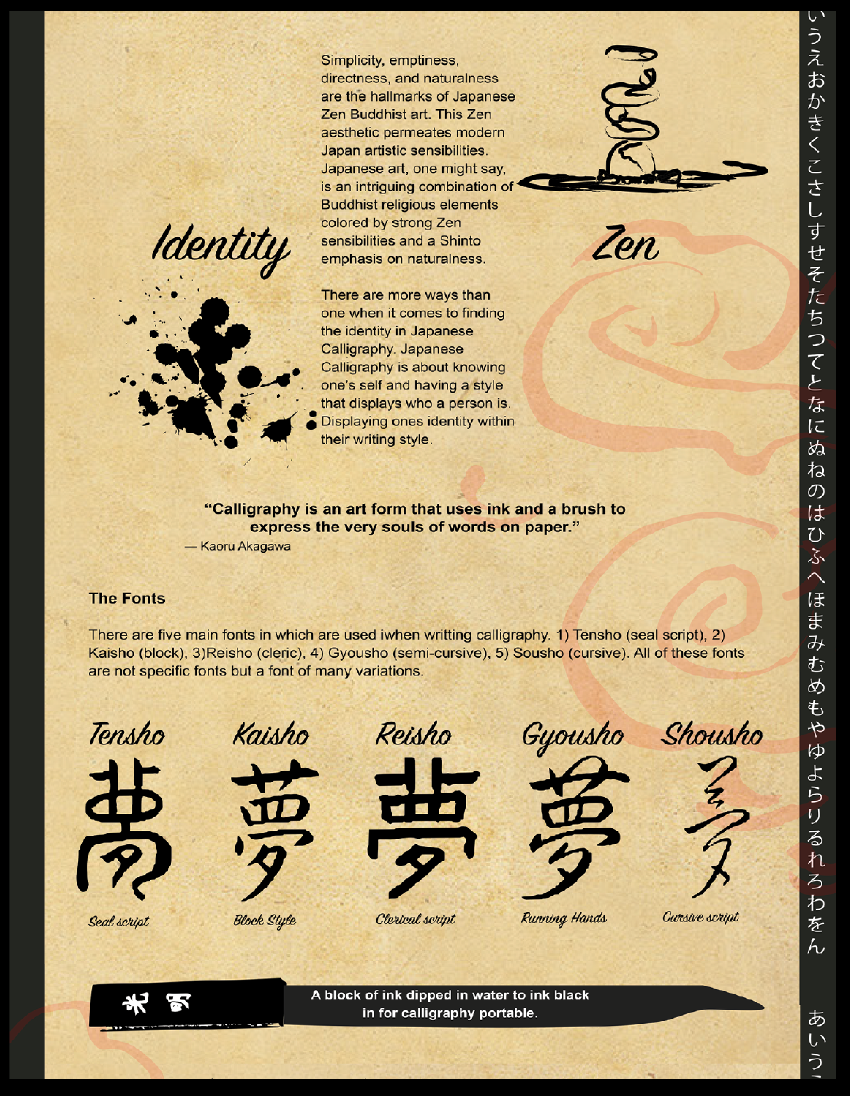 Simplicity, emptiness,
directness, and naturalness
are the hallmarks of Japanese
Zen Buddhist art. This Zen
aesthetic permeates modern
Japan artistic sensibilities.
Japanese art, one might say,
is an intriguing combination of
Buddhist religious elements
colored by strong Zen
sensibilities and a Shinto
emphasis on naturalness.
Identity
Zen
There are more ways than
one when it comes to finding
the identity in Japanese
Calligraphy. Japanese
Calligraphy is about knowing
one's self and having a style
that displays who a person is.
Displaying ones identity within
their writing style.
“Calligraphy is an art form that uses ink and a brush to
express the very souls of words on paper.”
— Kaoru Akagawa
The Fonts
There are five main fonts in which are used iwhen writting calligraphy. 1) Tensho (seal script), 2)
Kaisho (block), 3)Reisho (cleric), 4) Gyousho (semi-cursive), 5) Sousho (cursive). All of these fonts
are not specific fonts but a font of many variations.
Tensho Kaisho Reisho Gyousho Shousho
夢 夢 夢 夢 夢
Seal script Block Style Clerical script Running Hands Cursive script
光明
A block of ink dipped in water to ink black
in for calligraphy portable.
いうえおかきくこさしすせそたちつてとなにぬねのはひふへほまみむめもやゆよらりるれろわをん
あいう